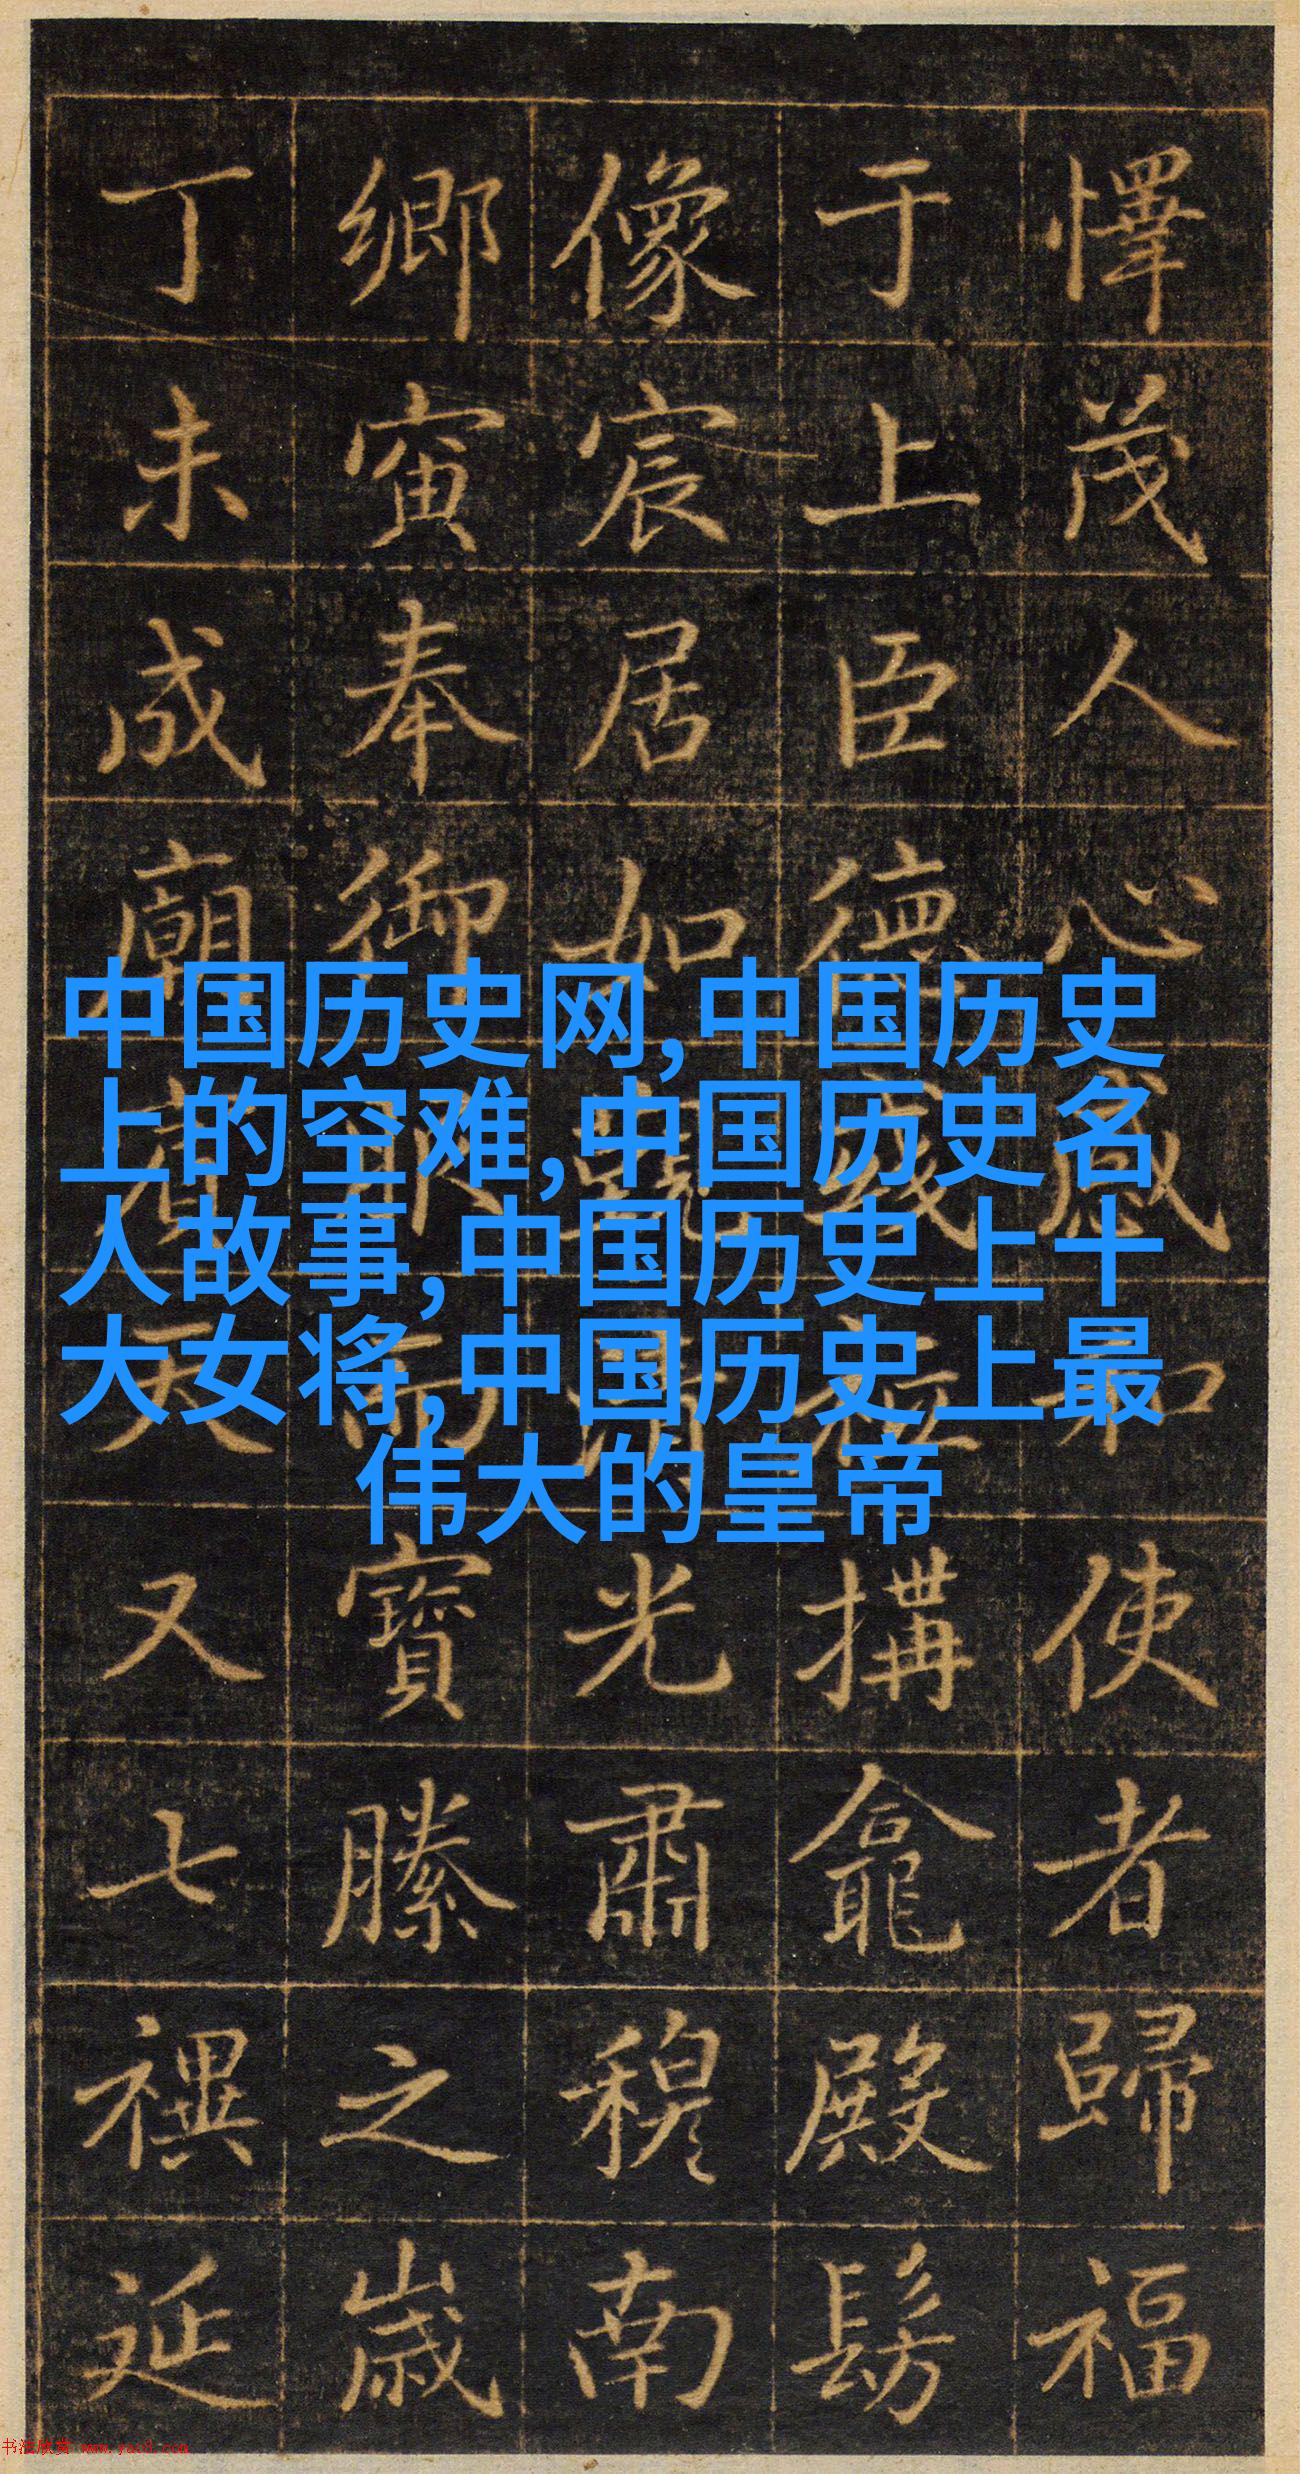 懌茂人心感和使者歸福
于上臣德踐極搆龕殿髣
像宸居如光肅穆南
鄉寅奉御宸而寶縢之歲
丁未成廟看天又七禩延
中国历史网,中国历史
上的空难,中国历史名
人故事,中国历史上十
大女将,中国历史上最
伟大的皇帝
书法欣赏 www.yac8.com